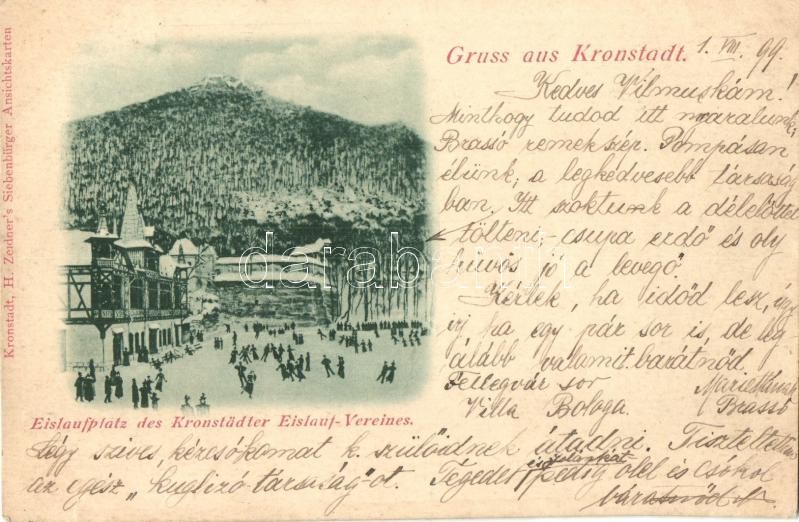 Gruss aus Kronstadt.
1. VIII. 99.
Kedves Vilmuskám!
Minthogy tudod itt nyaralunk,
Brassó remek szép. Pompásan
élünk, a legkedvesebb társaság
ban. Itt szoktunk a délelőttet
tölteni, csupa erdő és oly
hűvös jó a levegő.
Kérlek, ha időd lesz, úgy
írj ha egy pár sor is, de leg
alább valamit. barátnőd
Fellegvár sor Marie
Villa Bologa. Brassó
Légy szíves, kézcsókomat k. szülőidnek átadni. Tisztelted
az egész "kuglizó-társaság"-ot. Tégedet pedig ölel és csókol
barátnőd
Eislaufplatz des Kronstädter Eislauf-Vereines.
Kronstadt, H. Zeidner's Siebenbürger Ansichtskarten
darabanth